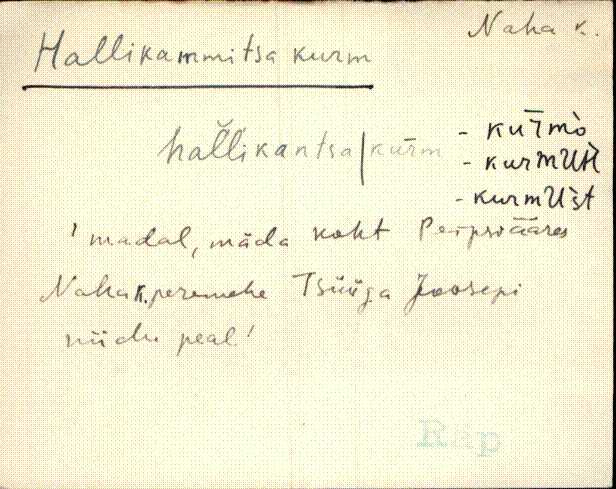 Naha k.
Hallikammitsa kurm
hallikantsa|kūrm - kuīmò
- kurmUH
- kurmUst
' madal, mäda koht Peipsiääres
Naha k. peremehe Tsüüga Joosepi
niidu peal!
Räp